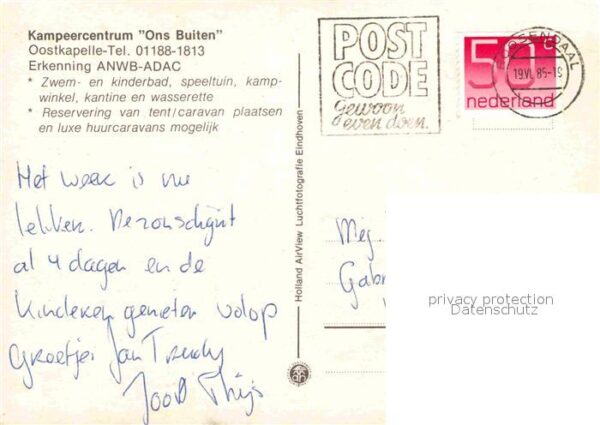 Kampeercentrum "Ons Buiten"
Oostkapelle-Tel. 01188-1813
Erkenning ANWB-ADAC
* Zwem- en kinderbad, speeltuin, kamp-
winkel, kantine en wasserette
* Reservering van tent/caravan plaatsen
en luxe huurcaravans mogelijk
POST
CODE
gewoon
even doen.
50c
nederland
ROOSENDAAL
19.VI.85-19
Het weer is nu
lekker. De zon schijnt
al 4 dagen en de
kinderen genieten volop
Groetjes Jan Trudy
Joost Thijs
Holland AirView Luchtfotografie Eindhoven
Mej.
Gabr
privacy protection
Datenschutz